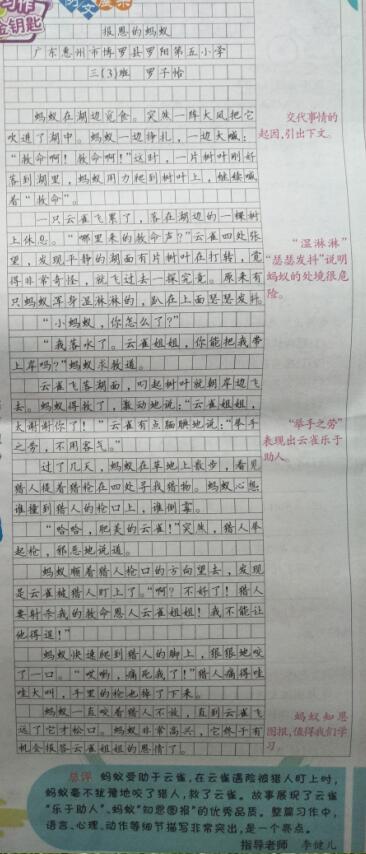 习作
金钥匙
例文展示
报恩的蚂蚁
广东惠州市博罗县罗阳第五小学
三(3)班 罗子怡
蚂蚁在湖边觅食。突然一阵大风把它
吹进了湖中。蚂蚁一边挣扎，一边大喊：
“救命啊！救命啊！”这时，一片树叶刚好
落到湖里，蚂蚁用力爬到树叶上，继续喊
着“救命”。
一只云雀飞累了，落在湖边的一棵树
上休息。“哪里来的救命声？”云雀四处张
望，发现平静的湖面有片树叶在打转，觉
得非常奇怪，就飞过去一探究竟。原来有
只蚂蚁浑身湿淋淋的，趴在上面瑟瑟发抖。
“小蚂蚁，你怎么了？”
“我落水了。云雀姐姐，你能把我带
上岸吗？”蚂蚁求救道。
云雀飞落湖面，叼起树叶就朝岸边飞
去。蚂蚁得救了，激动地说：“云雀姐姐，
太谢谢你了！”云雀有点腼腆地说：“举手
之劳，不用客气。”
过了几天，蚂蚁在草地上散步，看见
猎人提着猎枪在四处寻找猎物。蚂蚁心想
谁撞到猎人的枪口上，谁倒霉。
“哈哈，肥美的云雀！”突然，猎人举
起枪，邪恶地说道。
蚂蚁顺着猎人枪口的方向望去，发现
是云雀被猎人盯上了。“啊？不好了！猎人
要射杀我的救命恩人云雀姐姐！我不能让
他得逞！”
蚂蚁快速爬到猎人的脚上，狠狠地咬
了一口。“哎哟，痛死我了！”猎人痛得哇
哇大叫，手里的枪也掉了下来。
蚂蚁一直咬着猎人不放，直到云雀飞
远了它才松口。蚂蚁非常高兴，它终于有
机会报答云雀姐姐的恩情了。
交代事情的
起因，引出下文。
“湿淋淋”
“瑟瑟发抖”说明
蚂蚁的处境很危
险。
“举手之劳”
表现出云雀乐于
助人。
蚂蚁知恩
图报，值得我们学
习。
总评 蚂蚁受助于云雀，在云雀遇险被猎人盯上时，
蚂蚁毫不犹豫地咬了猎人，救了云雀。故事展现了云雀
“乐于助人”、蚂蚁“知恩图报”的优秀品质。整篇习作中，
语言、心理、动作等细节描写非常突出，是一个亮点。
指导老师 李健儿